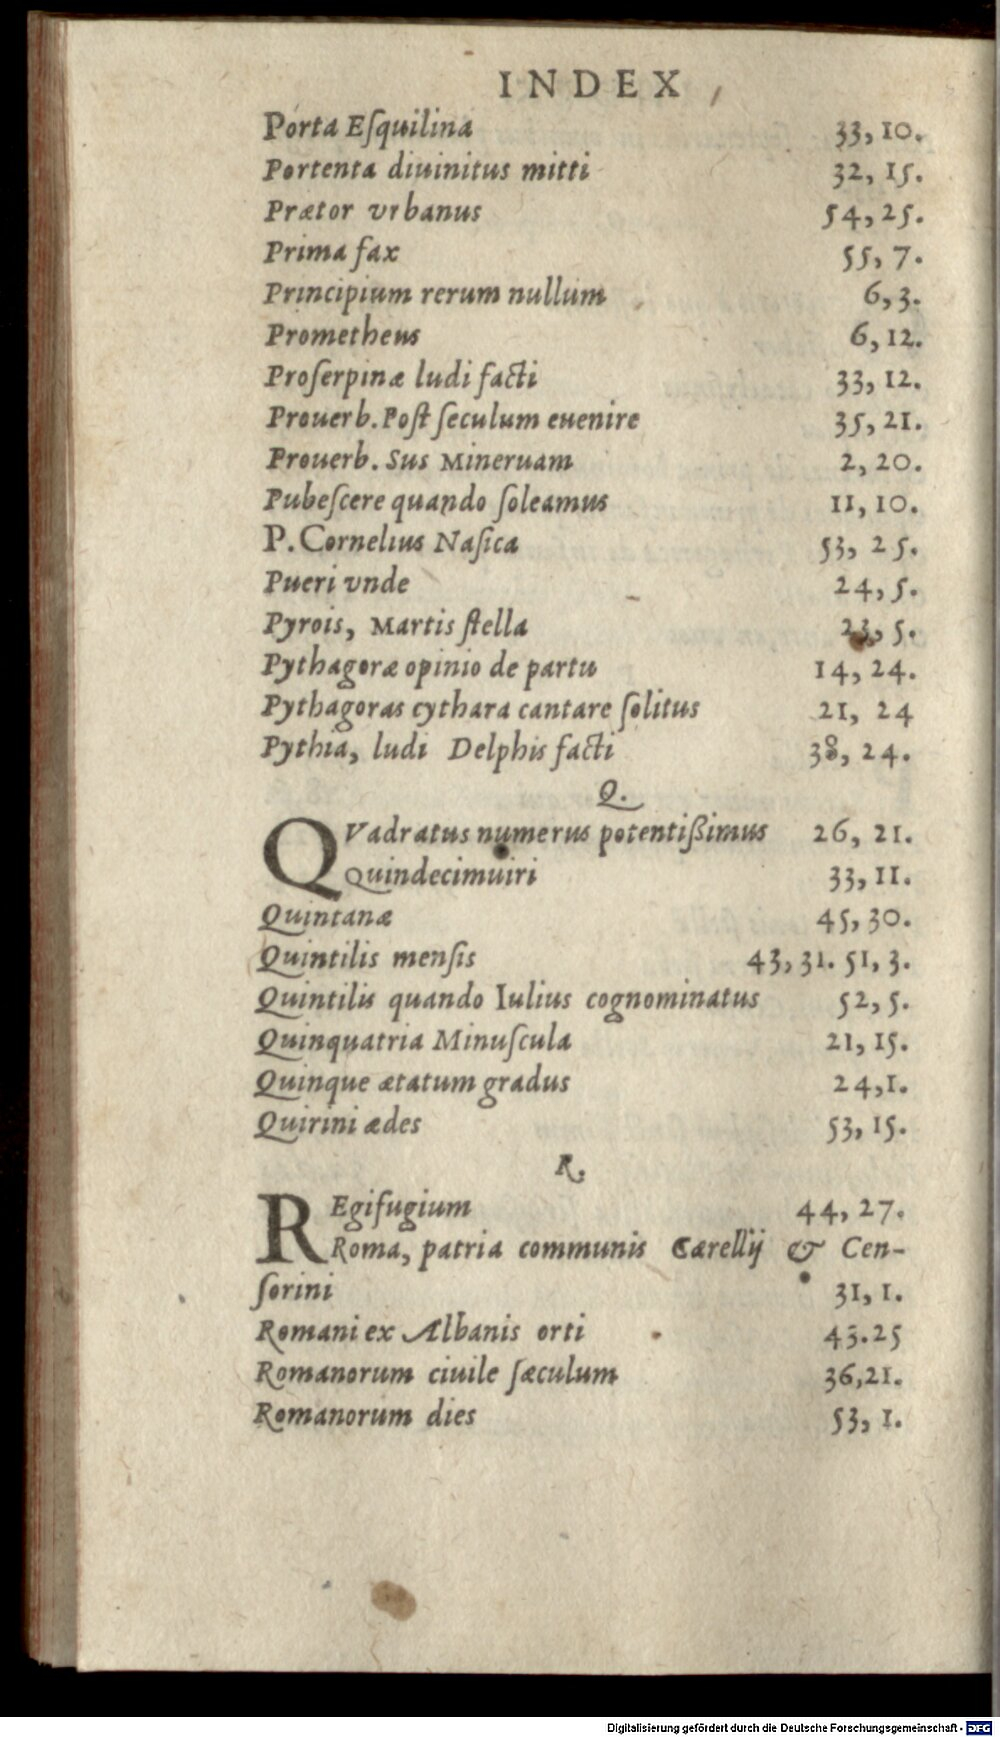 INDEX
Porta Eſquilina 33, 10.
Portenta diuinitus mitti 32, 15.
Prætor vrbanus 54, 25.
Prima fax 55, 7.
Principium rerum nullum 6, 3.
Prometheus 6, 12.
Proſerpinæ ludi facti 33, 12.
Prouerb. Poſt ſeculum euenire 35, 21.
Prouerb. Sus Mineruam 2, 20.
Pubeſcere quando ſoleamus 11, 10.
P. Cornelius Naſica 53, 25.
Pueri vnde 24, 5.
Pyrois, Martis ſtella 23, 5.
Pythagoræ opinio de partu 14, 24.
Pythagoras cythara cantare ſolitus 21, 24
Pythia, ludi Delphis facti 38, 24.
Q.
QVadratus numerus potentißimus 26, 21.
Quindecimuiri 33, 11.
Quintanæ 45, 30.
Quintilis menſis 43, 31. 51, 3.
Quintilis quando Iulius cognominatus 52, 5.
Quinquatria Minuſcula 21, 15.
Quinque ætatum gradus 24, 1.
Quirini ædes 53, 15.
R.
REgifugium 44, 27.
Roma, patria communis Cærellij & Cen-
ſorini 31, 1.
Romani ex Albanis orti 43.25
Romanorum ciuile ſæculum 36,21.
Romanorum dies 53, 1.
Digitalisierung gefördert durch die Deutsche Forschungsgemeinschaft - DFG